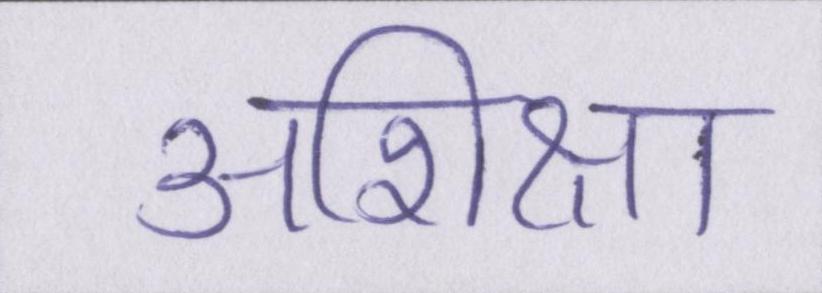 अशिक्षा